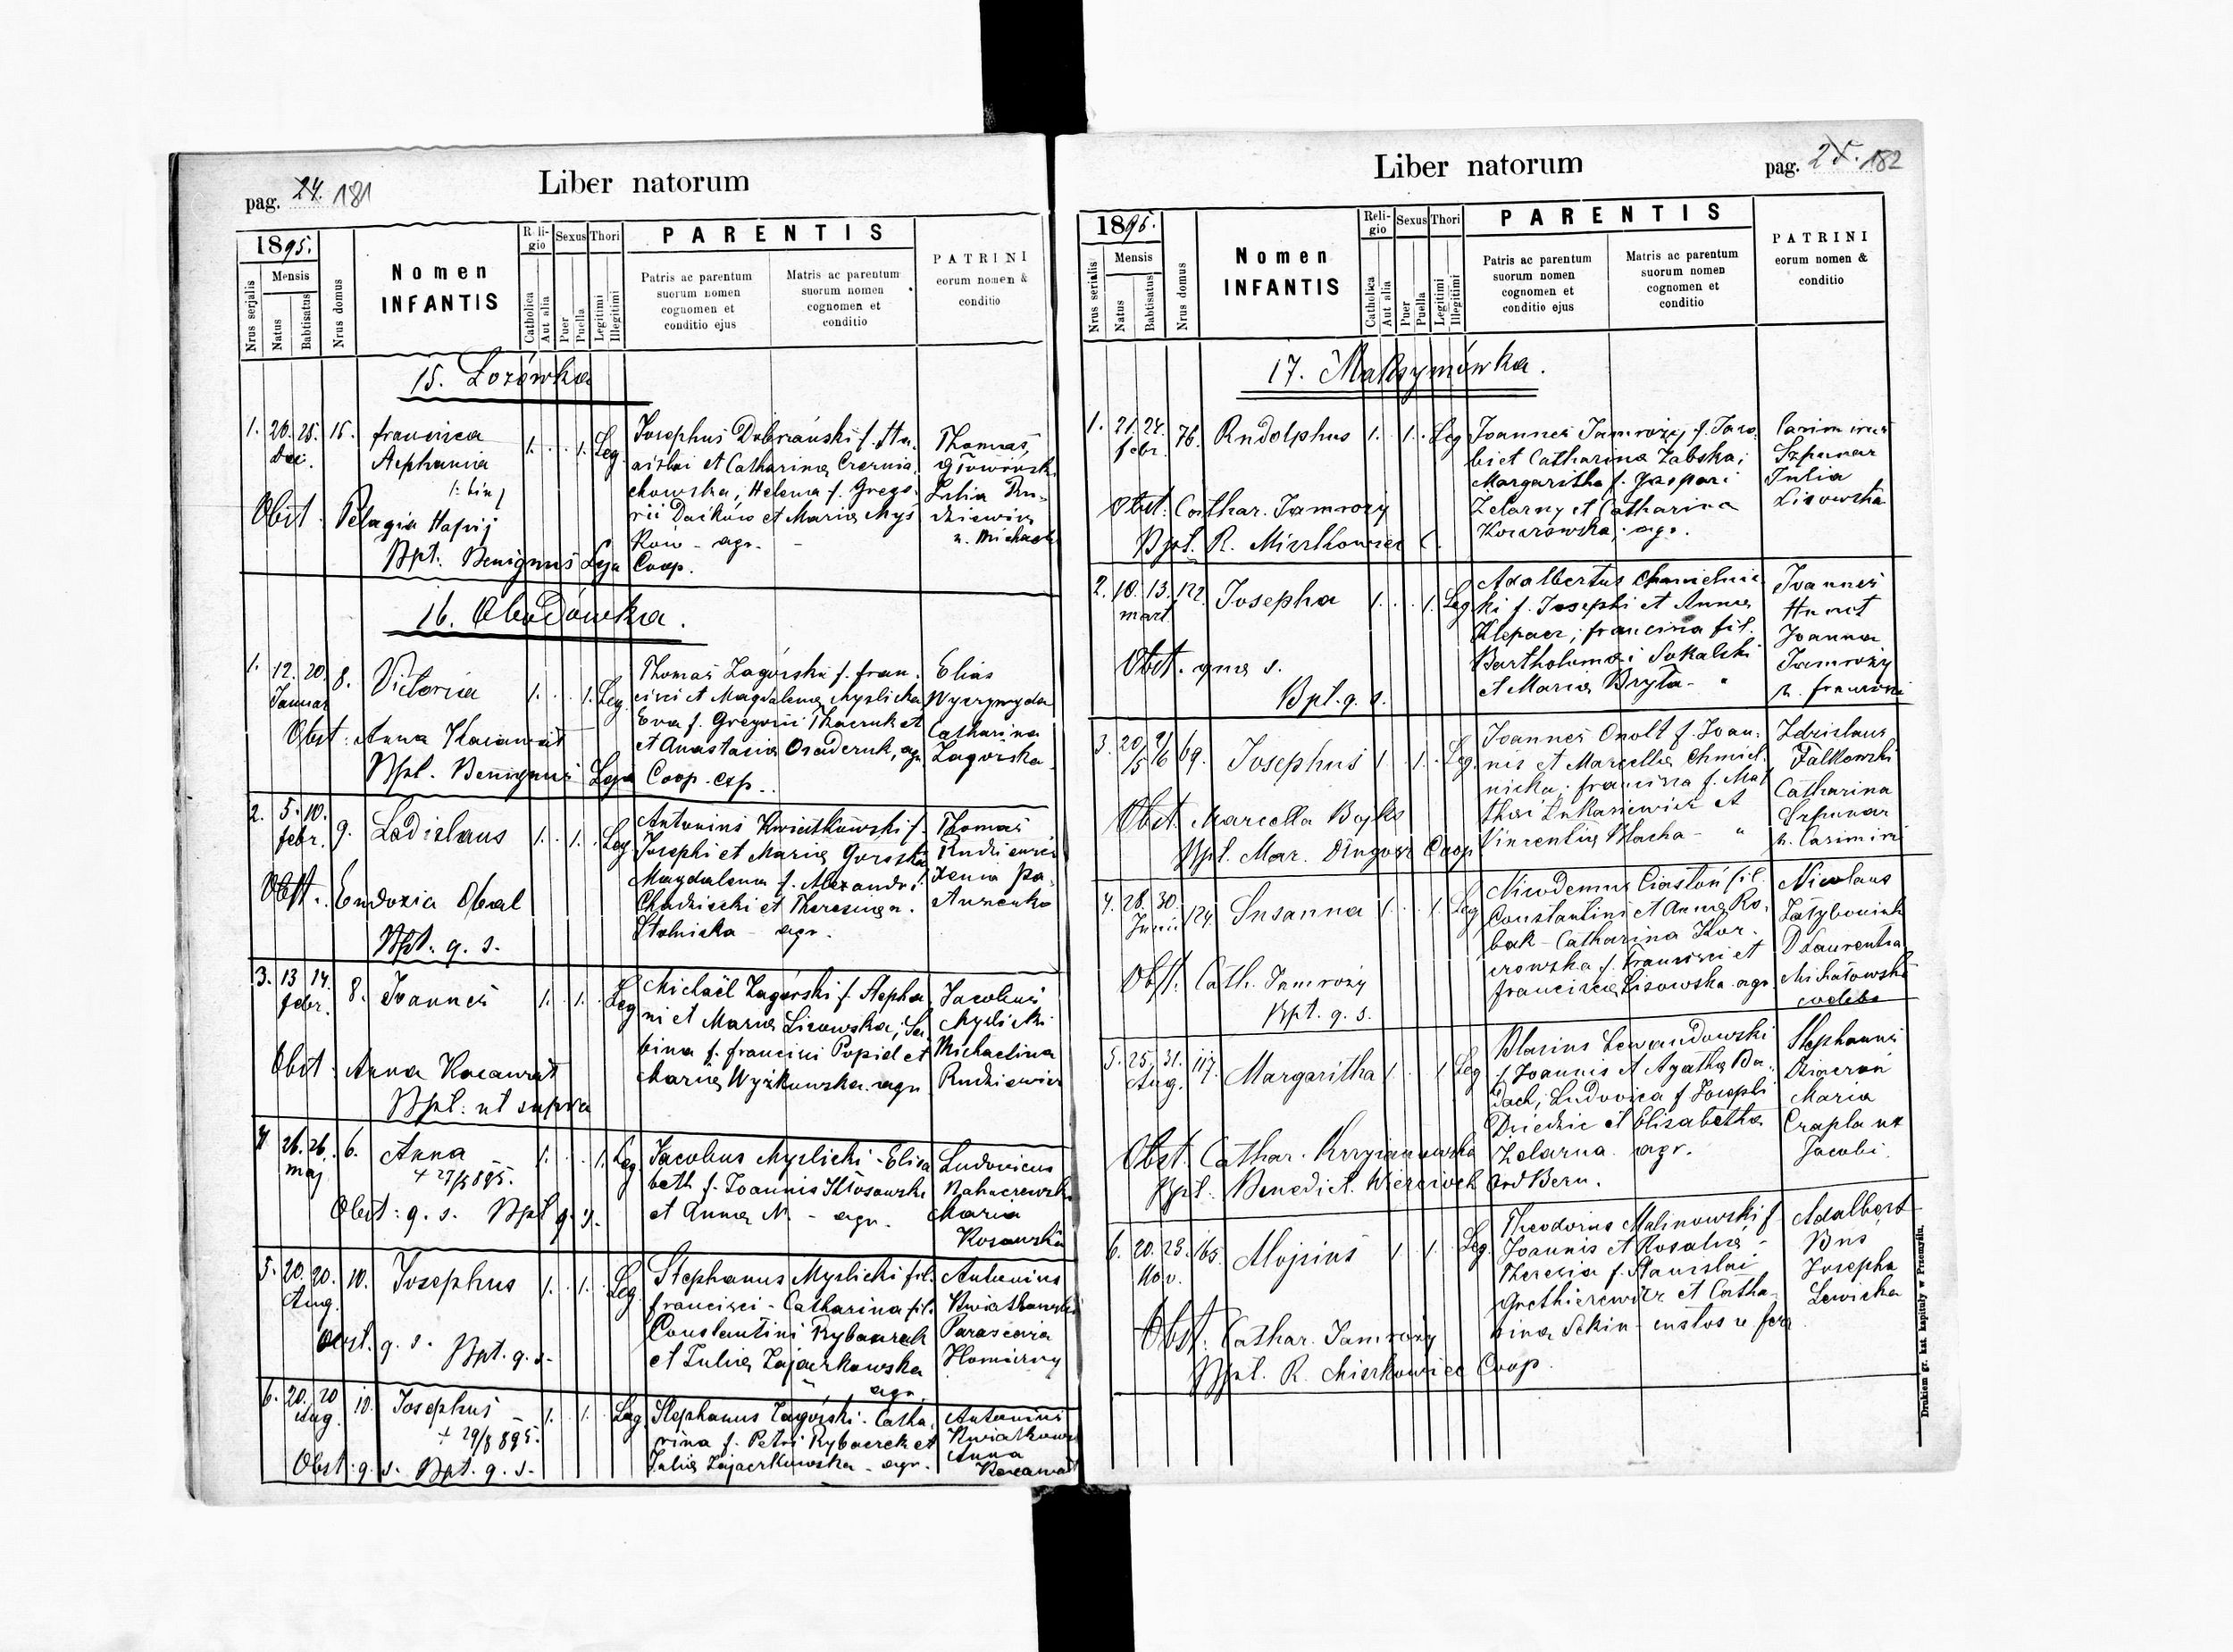 Liber natorum
pag. 24. 181
1895.
Nrus serjalis
Mensis
Natus
Babtisatus
Nrus domus
Nomen
INFANTIS
Religio
Catholica
Aut alia
Sexus
Puer
Puella
Thori
Legitimi
Illegitimi
PARENTIS
Patris ac parentum
suorum nomen
cognomen et
conditio ejus
Matris ac parentum
suorum nomen
cognomen et
conditio
PATRINI
eorum nomen &
conditio
15. Lozówka
1. 20. 25. 15. Francisca 1. 1. Leg Josephus Dobrzański f. Sta- Thomas
Dec. Stephania
aislai et Catharina Czernia- Głowiński
chowska; Helena f. Grego- Julia Ru-
Obst. Pelagia Hapij rii Daćków et Maria Mys dziewicz
kow - agr. - u. Michaeli
Bpt. Benignus Leja Coop.
16. Obodówka.
1. 12. 20. 8. Victoria 1. 1. Leg. Thomas Zagórski f. Fran- Elias
Januar cisci et Magdalena Myslicka Wyczywyda
Eva f. Gregorii Tkaczuk et Catharina
Obst: Anna Kacawat et Anastasia Osaderuk, agr Zagorska
Bpt. Benignus Leja Coop. exp..
2. 5. 10. 9. Ladislaus 1. 1. Leg Antonius Kwiatkowski f. Thomas
febr. Josephi et Maria Gorska Rudziewicz
Magdalena f. Alexandri Xenia Pa-
Obst. Eudoxia Obal Chadziecki et Theresia n.
Stolnicka - agr.
Bpt. q. s.
3. 13 14. 8. Joannes 1. 1. Leg Michaël Zagórski f. Stepha- Jacobus
febr. ni et Maria Lisowska; Sa- Myslicki
bina f. Francisci Popiel et Michaelina
Obst. Anna Kacawat Maria Wyżkowska agr Rudziewicz
Bpt: ut supra
4 26. 26. 6. Anna 1. 1. Leg Jacobus Myslicki - Elisa Ludovicus
maj + 27/5 895. beth f. Joannis Kłosowski
Obst: q. s. Bpt q. s. et Anna N. - agr. Maria
Kosowska
5. 20. 20. 10. Josephus 1. 1. Leg Stephanus Myslicki fil. Antonius
Aug. Francisci - Catharina fil. Kwiatkowski
Constantini Rybaczek Parascevia
Obst. q. s. Bpt. q. s. et Julia Zajaczkowska Homirny
agr
6. 20. 20 10 Josephus 1. 1. Leg Stephanus Zagórski - Catha- Antonius
Aug. + 29/8 895. rina f. Petri Rybaczek et Kwiatkows
Anna
Obst: q. s. Bpt. q. s. Julia Zajaczkowska - agr. Kacawat
Liber natorum
pag. 25. 182
1895.
Nrus serialis
Mensis
Natus
Babtisatus
Nrus domus
Nomen
INFANTIS
Religio
Catholica
Aut alia
Sexus
Puer
Puella
Thori
Legitimi
Illegitimi
PARENTIS
Patris ac parentum
suorum nomen
cognomen et
conditio ejus
Matris ac parentum
suorum nomen
cognomen et
conditio
PATRINI
eorum nomen &
conditio
17. Maksymówka.
1. 21. 24. 76. Rudolphus 1. 1. Leg Joannes Jamroży f. Jaco- Casimirus
febr. bi et Catharina Zabska; Szpunar
Margaritha f. Gaspari Julia
Obst. Cathar. Jamroży Zelarny et Catharina Lisowska
Bpt. R. Mierkowicz C. agr.
2. 10. 13. 122. Josepha 1. 1. Leg Adalbertus Chmielnic- Joannes
mart. ki f. Josephi et Anna
Klepacz; Francisca fil. Joanna
Obst. q. s. Bartholomai Sokalski Jamroży
et Maria Bryła - " u. Francisci
Bpt. q. s.
3. 20/5 9/6 69. Josephus 1 1. Leg. Joannes Onolt f. Joan- Zdzislaus
nis et Marcella Chmiel- Falkowski
nicka; Francisca f. Mat Catharina
Obst. Marcella Bojko thai Lukasiewicz et Szpunar
Bpt. Mar. Długosz Coop Vincentia Płacha - " u. Casimiri
4. 28. 30. 124. Susanna 1 1. Leg Nicodemus Ciastoń fil. Nicolaus
Junii Constantini et Anna Ro-
bak - Catharina Kor- D Laurentia
Obst. Cath. Jamroży czowska f. Francisci et Michałowska
Francisca Lisowska agr coelebs
Bpt. q. s.
5. 25. 31. 117. Margaritha 1 1 Leg Blasius Lewandowski Stephanus
Aug. f. Joannis et Agatha Ba-
dach; Ludovica f. Josephi Maria
Obst. Cathar. Krzyżanowska Dziedzic et Elisabetha Czapla ux
Zelarna agr. Jacobi.
Bpt. Benedict. Wiercioch Ord Bern.
6. 20. 23. 165. Alojsius 1 1. Leg. Theodorus Malinowski f Adalbert
Nov. Joannis et Rosalia - Bus
Theresia f. Stanislai Josepha
Grethierewicz et Catha- Lewicka
Obst. Cathar. Jamroży rina Sekin - custos
Bpt. R. Mierkowicz Coop.
Drukiem gr. kat. kapituły w Przemyślu.